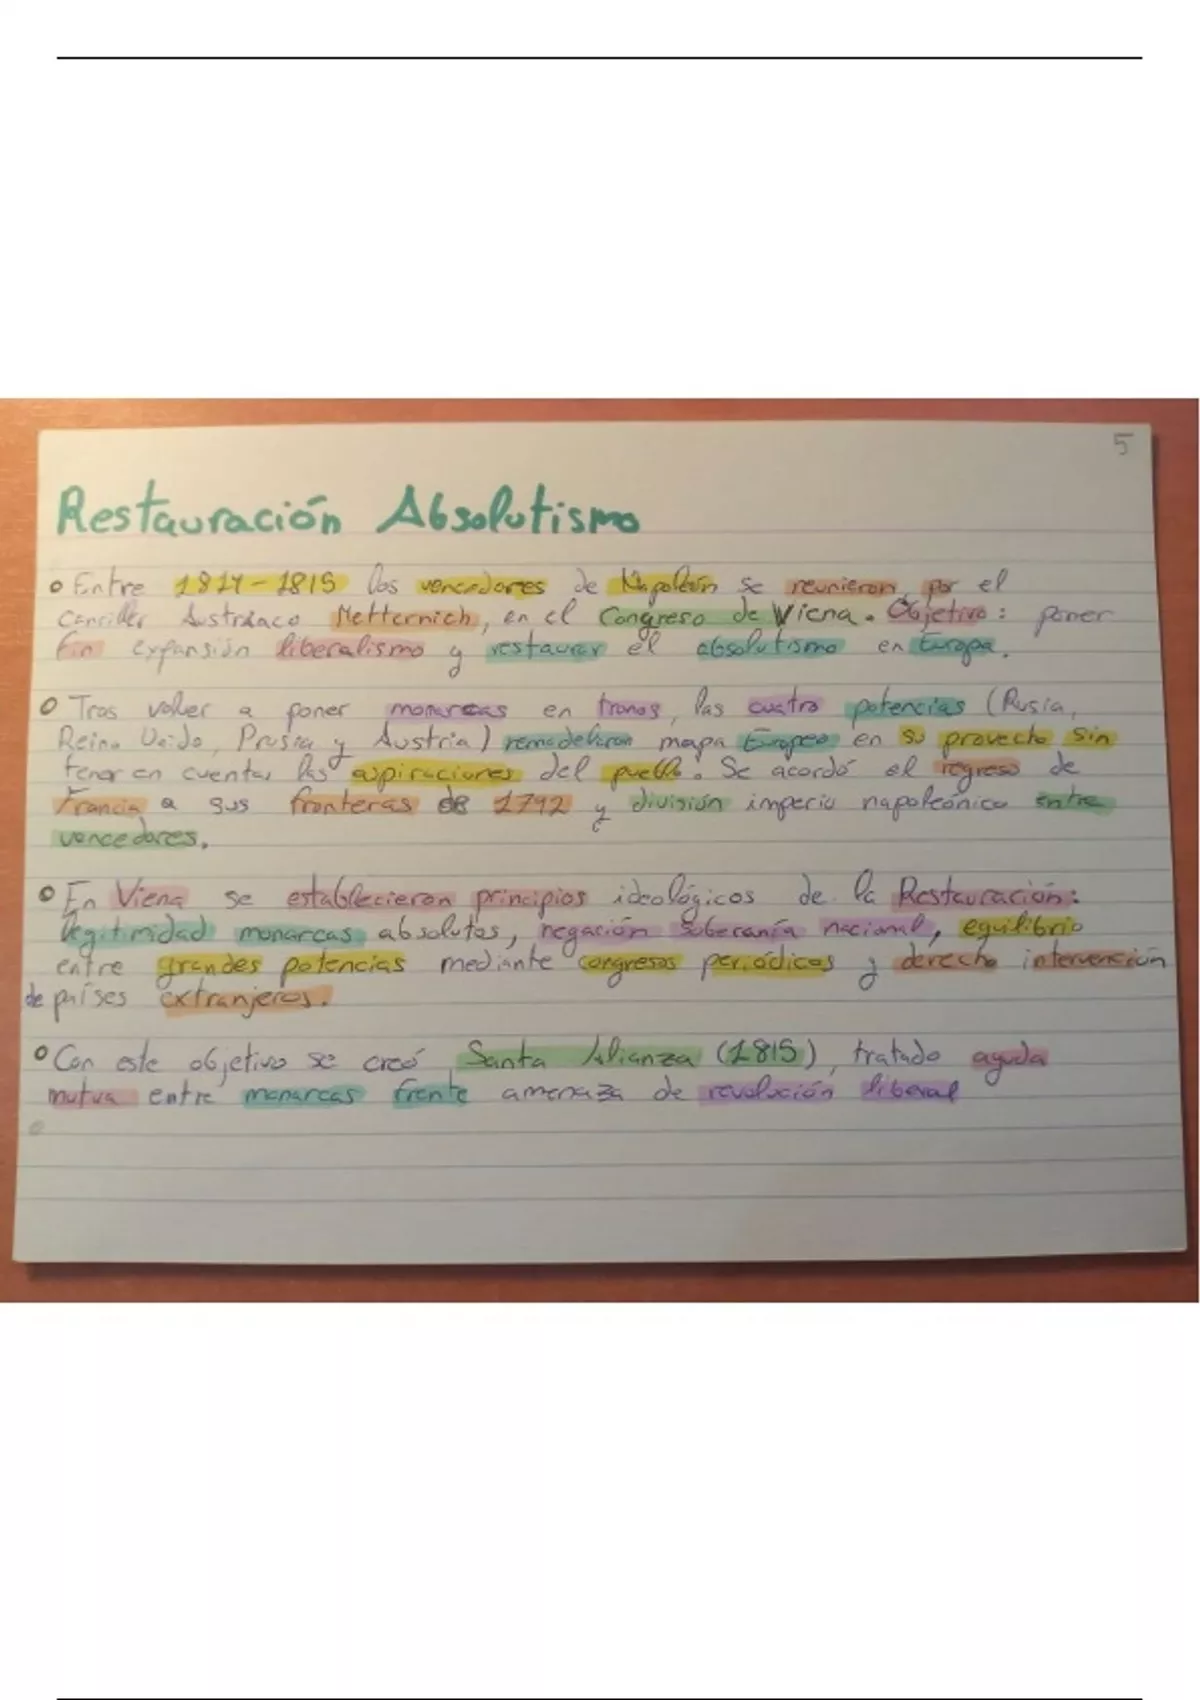 5
Restauración Absolutismo
Entre 1814-1815 los vencedores de Napoleón se reunieron, por el
canciller Austriaco Metternich, en el Congreso de Viena. Objetivo: poner
fin expansión liberalismo y restaurar el absolutismo en Europa.
Tras volver a poner monarcas en tronos, las cuatro potencias (Rusia,
Reino Unido, Prusia y Austria) remodelaron mapa Europeo en su provecho sin
tener en cuenta las aspiraciones del pueblo. Se acordó el regreso de
Francia a sus fronteras de 1792 y división imperio napoleónico entre
vencedores.
En Viena se establecieron principios ideológicos de la Restauración:
legitimidad monarcas absolutos, negación soberanía nacional, equilibrio
entre grandes potencias mediante congresos periódicos y derecho intervención
de países extranjeros.
Con este objetivo se creó Santa Alianza (1815), tratado ayuda
mutua entre monarcas frente amenaza de revolución liberal